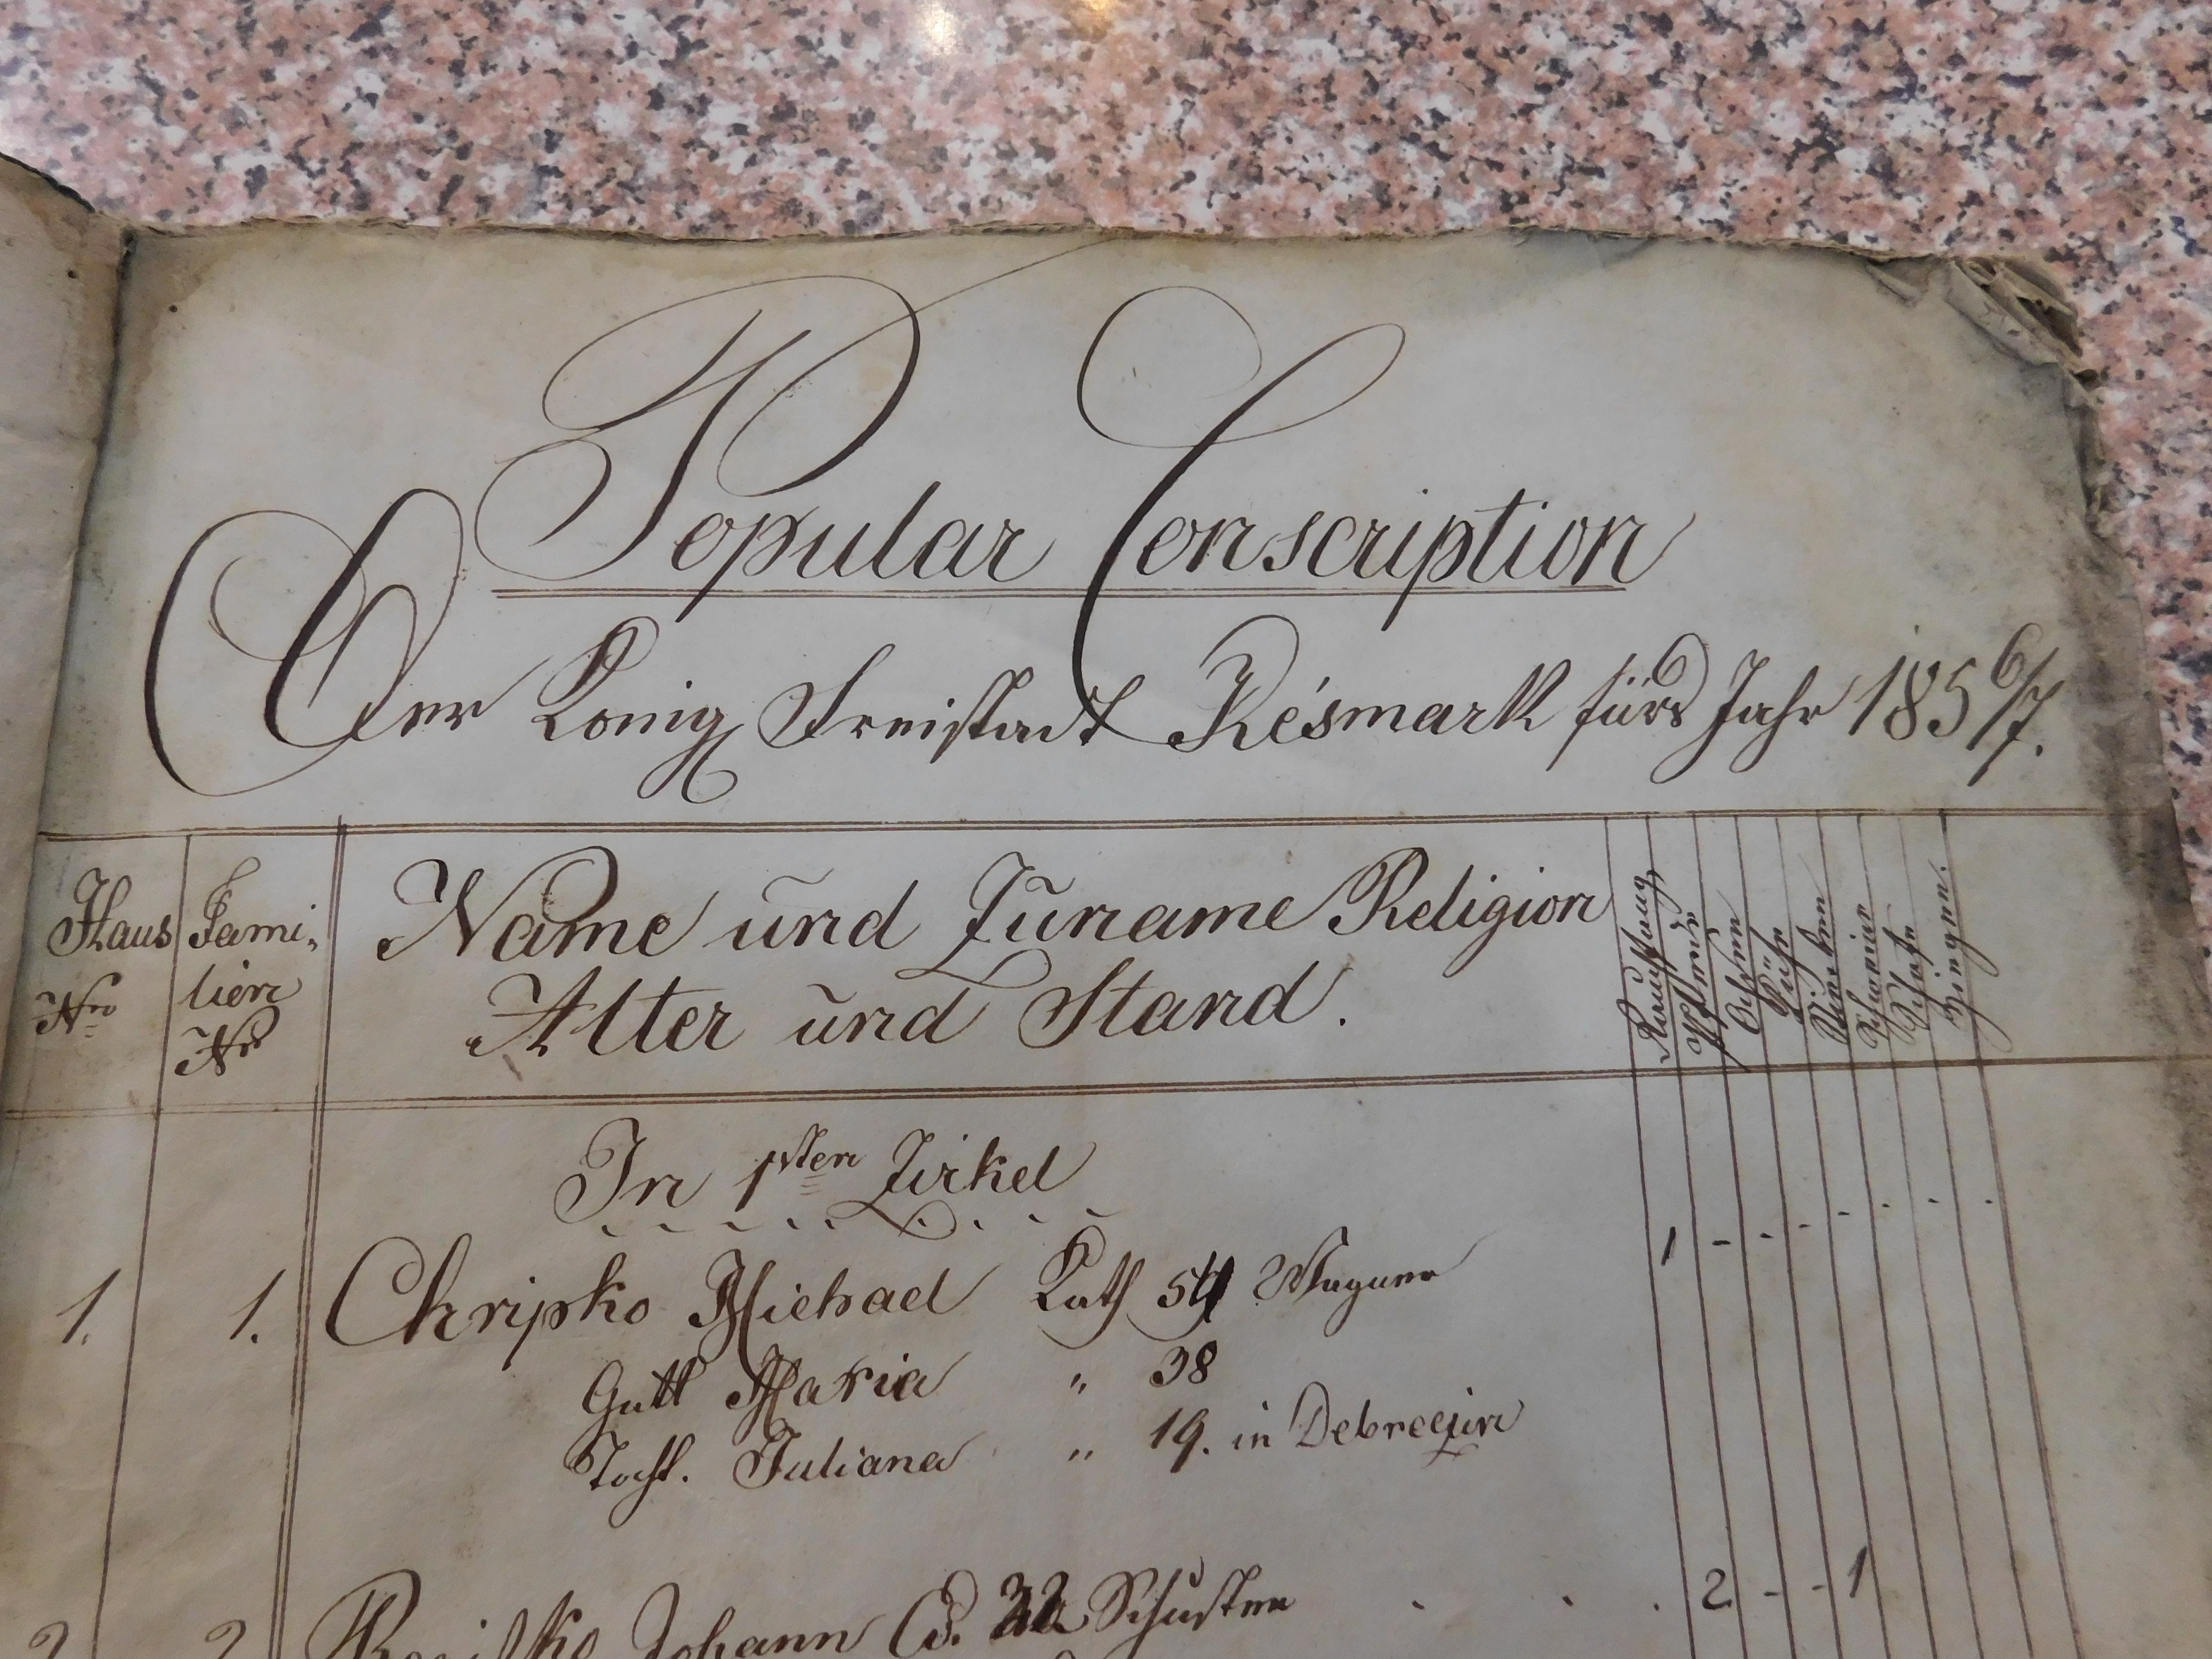 Popular Conscription
Der König Freistadt Késmark fürs Jahr 1856/7.
Haus Nro
Fami-
lien
Nro
Name und Zuname Religion
Alter und Stand.
Rauchfang
Pferde
Ochsen
Kühe
Schweine
Schafe
Ziegen.
In 1sten Zirkel
1. 1. Chripko Michael Kath 54 Wagner 1 - - - - - - -
Gatt Maria " 38
Tocht. Juliana " 19. in Debreczin
2 2 Johann Ev. 32 Schuster . . . 2 - - 1